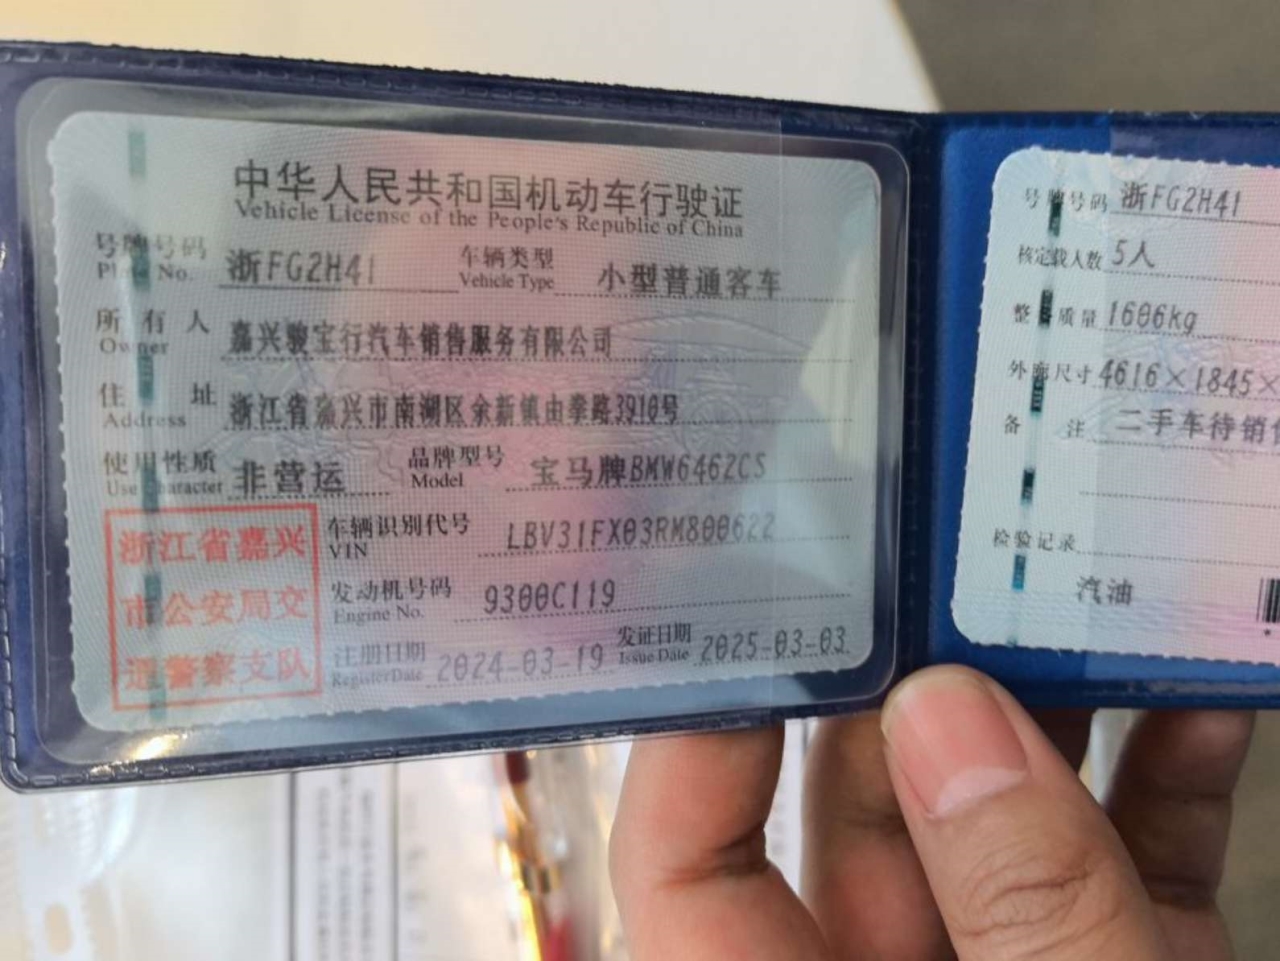 中华人民共和国机动车行驶证
Vehicle License of the People's Republic of China
号牌号码 浙FG2H41 车辆类型 小型普通客车
Plate No. Vehicle Type
所有人 嘉兴骏宝行汽车销售服务有限公司
Owner
住址 浙江省嘉兴市南湖区余新镇由拳路3910号
Address
使用性质 非营运 品牌型号 宝马牌BMW6462CS
Use Character Model
浙江省嘉兴
市公安局交
通警察支队
车辆识别代号 LBV31FX03RM800622
VIN
发动机号码 9300C119
Engine No.
注册日期 2024-03-19 发证日期 2025-03-03
Register Date Issue Date
号牌号码 浙FG2H41
核定载人数 5人
整备质量 1606kg
外廓尺寸 4616×1845×
备注 二手车待销售
检验记录
汽油